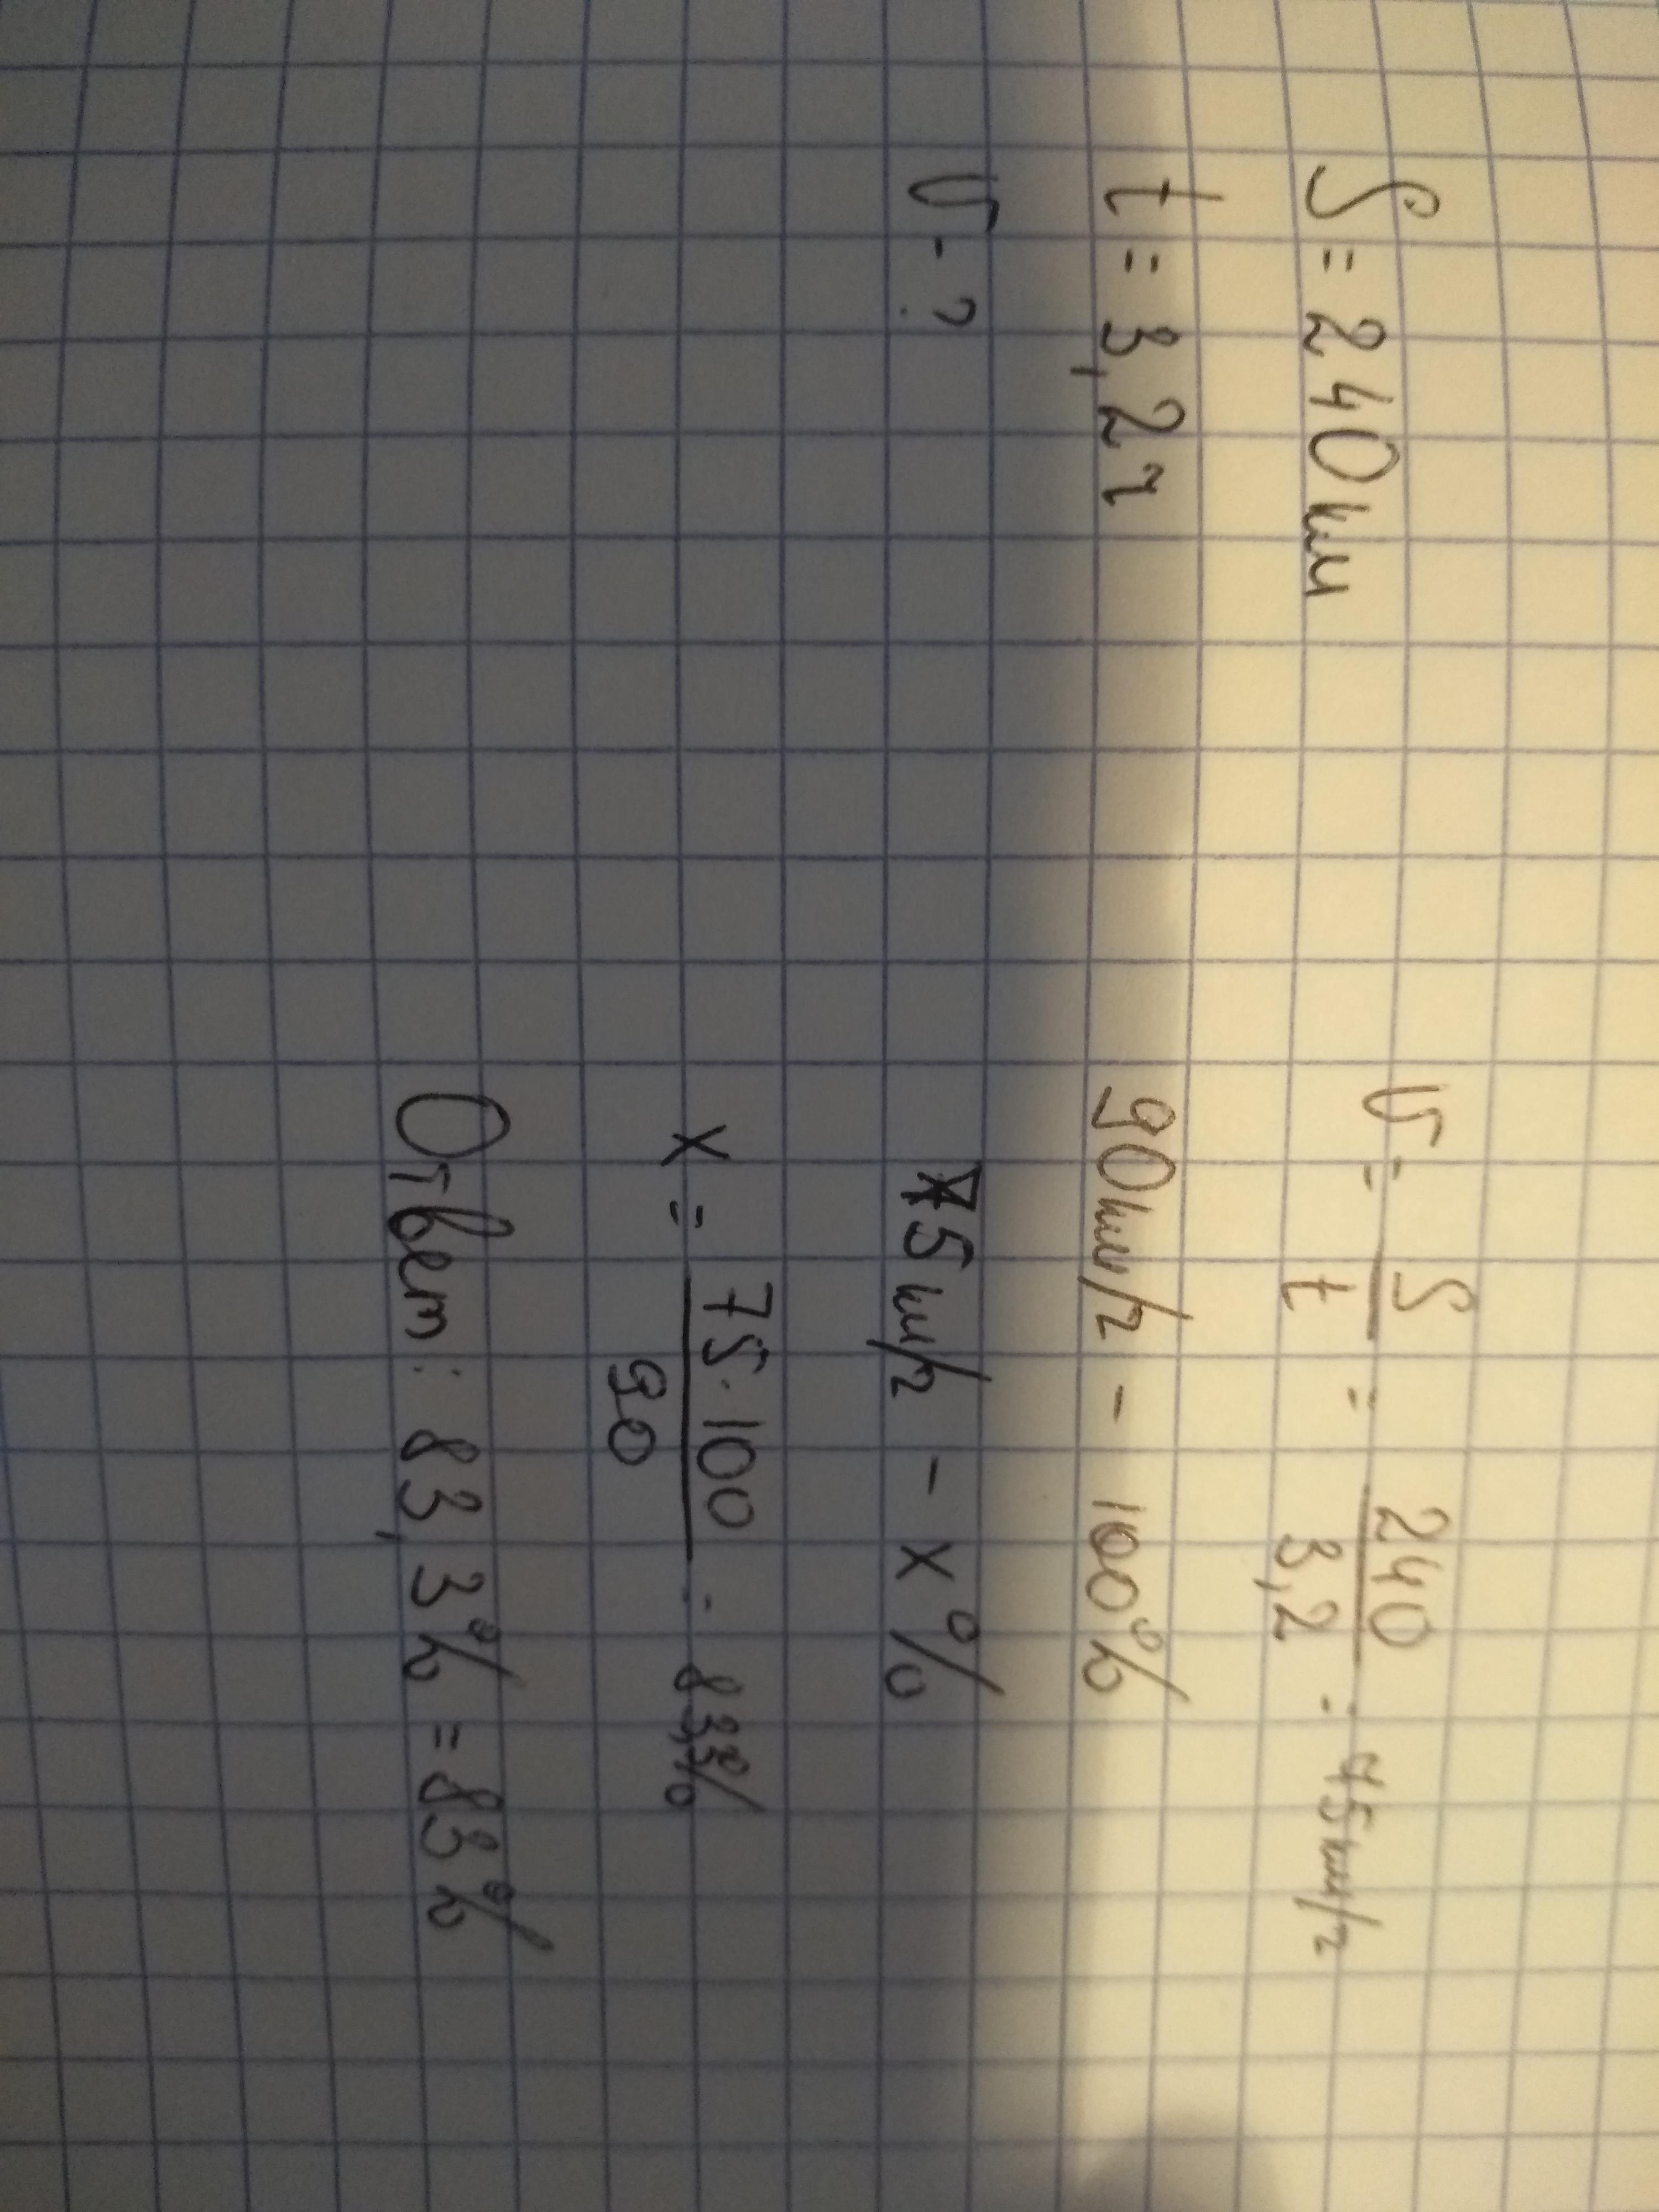 S = 240км
t = 3,2ч
V - ?
V = S/t = 240/3,2 = 75км/ч
90км/ч - 100%
75км/ч - x%
x = 75·100/90 = 83,3%
Ответ: 83,3% = 83%